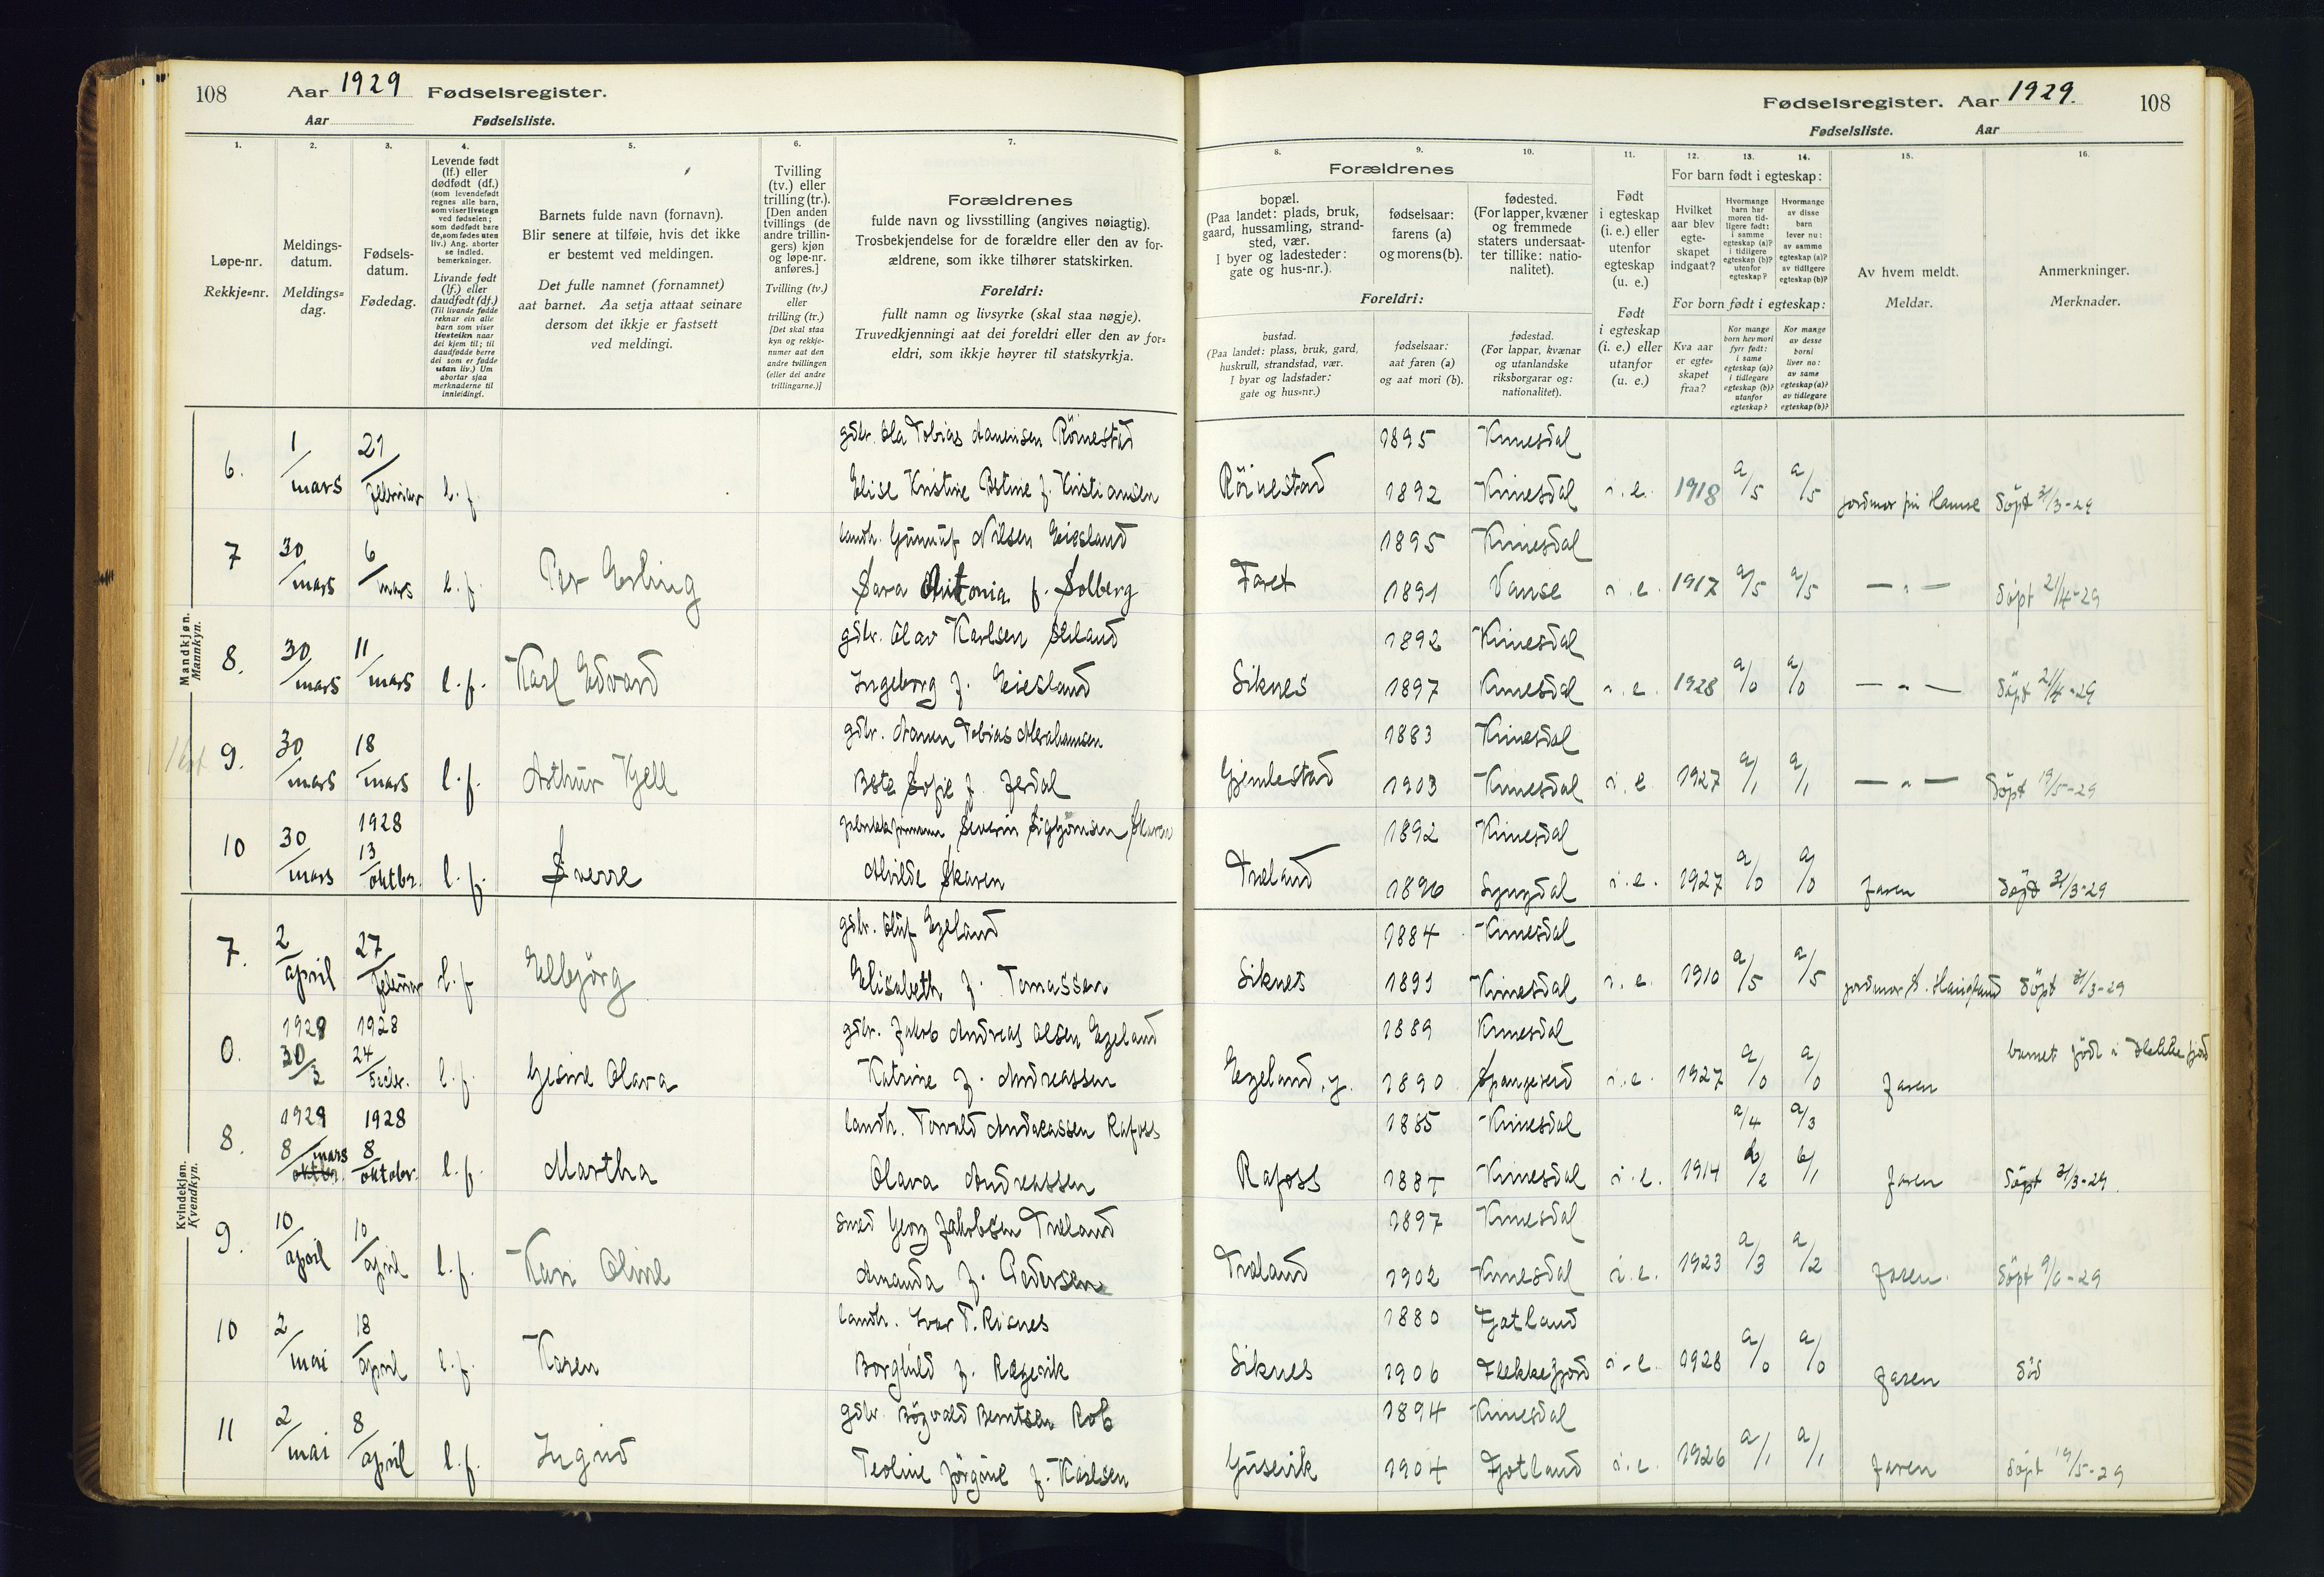 108 Aar 1929 Fødselsregister.
Aar Fødselsliste.
1. 2. 3. 4. 5. 6. 7.
Løpe-nr.
Rekkje-nr.
Meldings-
datum.
Meldings-
dag.
Fødsels-
datum.
Fødedag.
Levende født
(lf.) eller
dødfødt (df.)
(som levendefødt
regnes alle barn,
som viser livstegn
ved fødselen;
som dødfødt bare
de, som fødes uten
liv.) Ang. aborter
se indled.
bemerkninger.
Livande født
(lf.) eller
daudfødt (df.)
(Til livande fødde
reknar ein alle
barn som viser
livsteikn naar
dei kjem til; til
daudfødde berre
dei som er fødde
utan liv.) Um
abortar sjaa
merknaderne til
innleidingi.
Barnets fulde navn (fornavn).
Blir senere at tilføie, hvis det ikke
er bestemt ved meldingen.
Det fulle namnet (fornamnet)
aat barnet. Aa setja attaat seinare
dersom det ikkje er fastsett
ved meldingi.
Tvilling
(tv.) eller
trilling (tr.).
[Den anden
tvillings (de
andre trillin-
gers) kjøn
og løpe-nr.
anføres.]
Tvilling (tv.)
eller
trilling (tr.)
[Det skal staa
kyn og rekkje-
numer aat den
andre tvillingen
(eller dei andre
trillingarne.)]
Forældrenes
fulde navn og livsstilling (angives nøiagtig).
Trosbekjendelse for de forældre eller den av for-
ældrene, som ikke tilhører statskirken.
Foreldri:
fullt namn og livsyrke (skal staa nøgje).
Truvedkjenningi aat dei foreldri eller den av for-
eldri, som ikkje høyrer til statskyrkja.
Fødselsregister. Aar 1929. 108
Fødselsliste. Aar
8. 9. 10. 11. 12. 13. 14. 15. 16.
Forældrenes
bopæl.
(Paa landet: plads, bruk,
gaard, hussamling, strand-
sted, vær.
I byer og ladesteder:
gate og hus-nr.).
fødselsaar:
farens (a)
og morens (b).
fødested.
(For lapper, kvæner
og fremmede
staters undersaat-
ter tillike: natio-
nalitet).
Foreldri:
bustad.
(Paa landet: plass, bruk, gard,
huskrull, strandstad, vær.
I byar og ladstader:
gate og hus-nr.)
fødselsaar:
aat faren (a)
og aat mori (b).
fødestad.
(For lappar, kvænar
og utanlandske
riksborgarar og:
nationalitet).
Født
i egteskap
(i. e.) eller
utenfor
egteskap
(u. e.)
Født
i egteskap
(i. e.) eller
utanfor
(u. e.)
For barn født i egteskap:
Hvilket
aar blev
egte-
skapet
indgaat?
Hvormange
barn har
moren tid-
ligere født:
i samme
egteskap (a)?
i tidligere
egteskap (b)?
utenfor
egteskap?
Hvormange
av disse
barn
lever nu:
av samme
egteskap (a)?
av tidligere
egteskap (b)?
For born født i egteskap:
Kva aar
er egte-
skapet
fraa?
Kor mange
born hev mori
fyrr født:
i same
egteskap (a)?
i tidlegare
egteskap (b)?
utanfor
egteskap?
Kor mange
av desse
borni
liver no:
av same
egteskap (a)?
av tidlegare
egteskap (b)?
Av hvem meldt.
Meldar.
Anmerkninger.
Merknader.
Mandkjøn.
Mannkyn.
gdbr. Ola Tobias Aanensen Röinestad 1895 Kvinesdal
6. 1/mars 21/februar l.f. Elise Kristine Betine f. Kristiansen Röinestad 1892 Kvinesdal i.e. 1918 a/5 a/5 jordmor Hamre Döpt 31/3-29
landh. Gunnuf Nilsen Eiesland 1895 Kvinesdal
7 30/mars 6/mars l.f. Per Erling Sara Antonia f. Solberg Faret 1891 Vanse i.e. 1917 a/5 a/5 — " — Döpt 21/4-29
gdbr. Olav Karlsen 1892 Kvinesdal
8. 30/mars 11/mars l.f. Karl Edvard Ingeborg f. Eiesland Siknes 1897 Kvinesdal i.e. 1928 a/0 a/0 — " — Döpt 21/4-29
gdbr. Aanen Tobias Abrahamsen 1883 Kvinesdal
9. 30/mars 18/mars l.f. Arthur Kjell Bete Sofie f. Jerdal Gjemlestad 1903 Kvinesdal i.e. 1927 a/1 a/1 — " — Döpt 19/5-29
1928 Severin Sigbjörnsen Skaren 1892 Kvinesdal
10 30/mars 13/oktbr. l.f. Sverre Alvilde Skaren Træland 1896 Lyngdal i.e. 1927 a/0 a/0 faren Döpt 31/3-29
Kvindekjøn.
Kvendkyn.
gdbr. Oluf Egeland 1884 Kvinesdal
7. 2/april 27/februar l.f. Elbjörg Elisabeth f. Tomassen Siknes 1891 Kvinesdal i.e. 1910 a/5 a/5 jordmor A. Haugland Döpt 31/3-29
1929 1928 gdbr. Jakob Andreas Olsen Egeland 1889 Kvinesdal
0. 30/3 24/decbr. l.f. Gesine Olava Katrine f. Andreassen Egeland, y. 1890 Spangereid i.e. 1927 a/0 a/0 faren barnet födt i Flekkefjord
1929 1928 landh. Torvald Andreassen Rafoss 1885 Kvinesdal a/4 a/3
8. 8/mars oktbr. 8/oktober l.f. Martha Olava Andreassen Rafoss 1884 Kvinesdal i.e. 1914 b/2 b/1 faren Döpt 31/3-29.
smed Georg Jakobsen Træland 1897 Kvinesdal
9. 10/april 10/april l.f. Kari Oline Amanda f. Pedersen Træland 1902 Kvinesdal i.e. 1923 a/3 a/2 faren. Döpt 9/6-29
landh. Ivar T. Risnes 1880 Fjotland
10 2/mai 18/april l.f. Karen Borghild f. Regevik Siknes 1906 Flekkefjord i.e. 1928 a/0 a/0 faren död
gdbr. Bögvald Berntsen Rob 1894 Kvinesdal
11 2/mai 8/april l.f. Ingrid Teoline Jörgine f. Karlsen Gusevik 1904 Fjotland i.e. 1926 a/1 a/1 faren Döpt 19/5-29